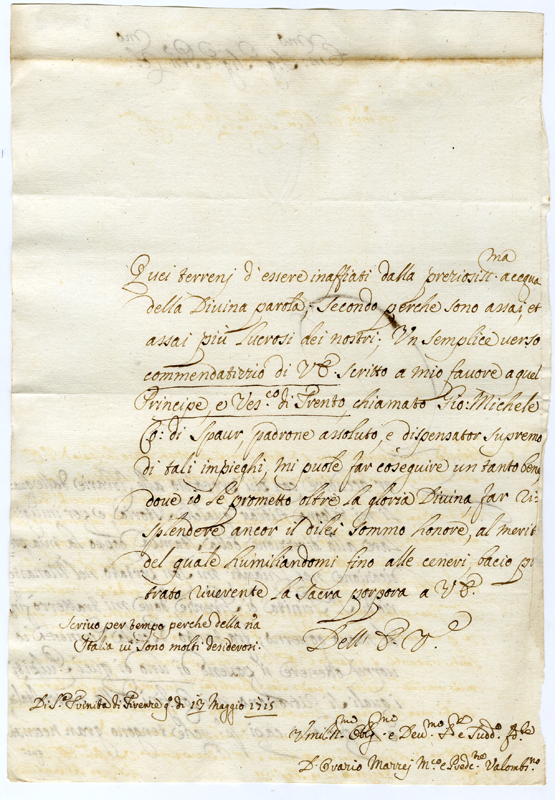 Quei terrenj d'essere inaffiati dalla preziosiss.ma acqua
della Divina parola; secondo perche sono assai, et
assai più lucrosi dei nostri; Un semplice verso
commendatizzio di V.E. scritto a mio favore a quel
Principe, e Ves.co di Trento chiamato Gio: Michele
Co: di Spaur, padrone assoluto, e dispensator supremo
di tali impieghi, mi puole far coseguire un tanto bene,
dove io le prometto oltre la gloria Divina, far ri=
splendere ancor il di lei sommo honore, al merit
del quale humiliandomi fino alle ceneri, bacio p
trato riverente la Sacra porpora a V.E.
Scrivo per tempo perche della nra
Italia vi sono molti desiderosi.
Dell' E. V.
Di S.a Trinità di Firenze q.o di 17 Maggio 1715
Umiliss.mo Oblig.mo e Dev.mo
D. Evario Marrej M.co e Predic.re Valombr.no